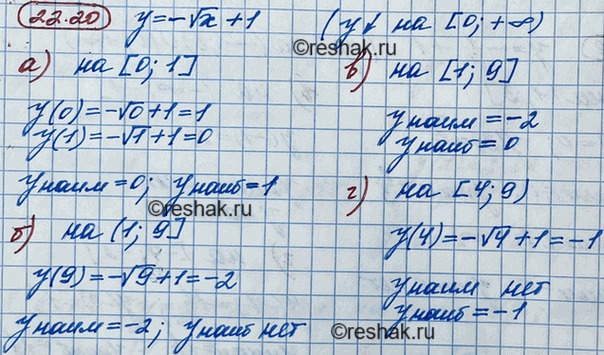 22.20 y=-√x+1 (y↓ на [0; +∞)
а) на [0; 1]
y(0)=-√0+1=1
y(1)=-√1+1=0
yнаим=0; yнаиб=1
б) на (1; 9]
y(9)=-√9+1=-2
yнаим=-2; yнаиб нет
в) на [1; 9]
yнаим=-2
yнаиб=0
г) на [4; 9)
y(4)=-√4+1=-1
yнаим нет
yнаиб=-1
©reshak.ru
©reshak.ru
©reshak.ru